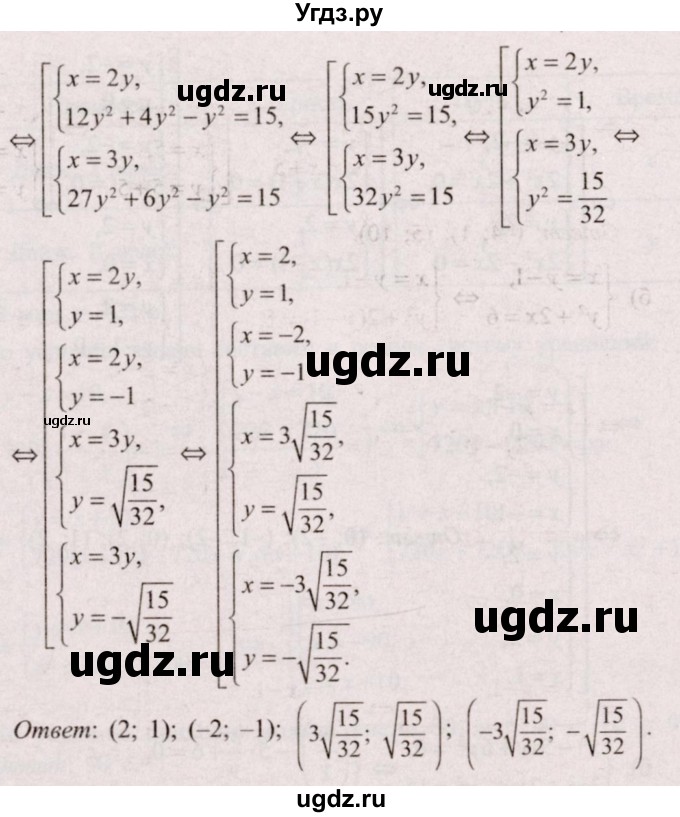 Угдз.ру
⇔ [ { x = 2y, 12y² + 4y² − y² = 15, { x = 3y, 27y² + 6y² − y² = 15 ⇔ [ { x = 2y, 15y² = 15, { x = 3y, 32y² = 15 ⇔ [ { x = 2y, y² = 1, { x = 3y, y² = 15/32 ⇔
ugdz.ru
ugdz.ru
⇔ [ { x = 2y, y = 1, { x = 2y, y = −1 { x = 3y, y = √(15/32), { x = 3y, y = −√(15/32) ⇔ [ { x = 2, y = 1, { x = −2, y = −1 { x = 3√(15/32), y = √(15/32), { x = −3√(15/32), y = −√(15/32).
ugdz.ru
ugdz.ru
ugdz.ru
ugdz.ru
Ответ: (2; 1); (−2; −1); (3√(15/32); √(15/32)); (−3√(15/32); −√(15/32)).
ugdz.ru